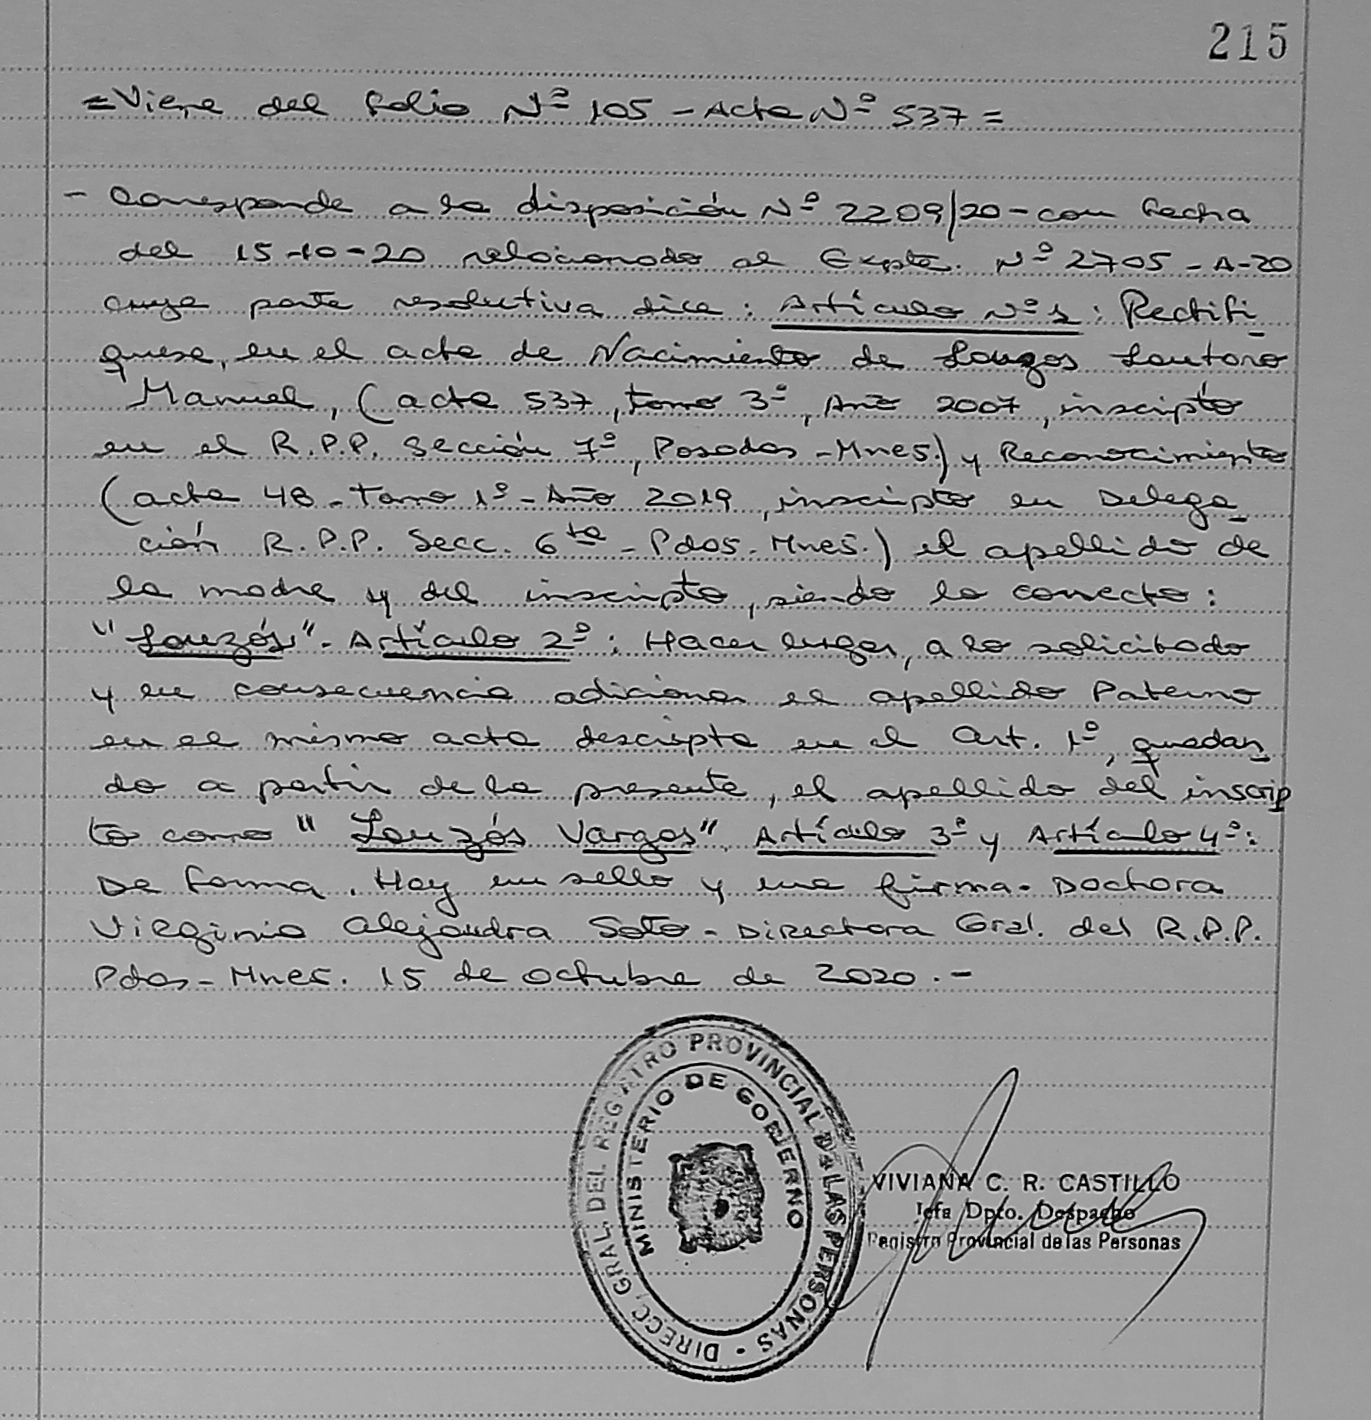 215
=Viene del folio Nº 105 - Acta Nº 537=
- Corresponde a la disposición Nº 2209/20- con fecha
del 15-10-20 relacionado al Expte. Nº 2705-A-20
cuya parte resolutiva dice: Artículo Nº 1: Rectifi_
quese, en el acta de Nacimiento de Louzos Lautaro
Manuel, (acta 537, tomo 3º, Año 2007, inscripto
en el R.P.P. Sección 7º, Posadas-Mnes.) y Reconocimiento
(acta 48-tomo 1º-Año 2019, inscripto en Delega_
ción R.P.P. Secc. 6ta-Pdas. Mnes.) el apellido de
la madre y del inscripto, siendo lo correcto:
"Louzós"- Artículo 2º: Hacer lugar, a lo solicitado
y en consecuencia adicionar el apellido Paterno
en el mismo acta descripta en el Art. 1º, quedan_
do a partir de la presente, el apellido del inscrip
to como "Louzós Vargas". Artículo 3º y Artículo 4º:
De forma. Hay un sello y una firma- Doctora
Virginia Alejandra Soto - Directora Gral. del R.P.P.
Pdas-Mnes. 15 de octubre de 2020.-
DIRECC. GRAL. DEL REGISTRO PROVINCIAL DE LAS PERSONAS -
MINISTERIO DE GOBIERNO
VIVIANA C. R. CASTILLO
Jefa Dpto. Despacho
Registro Provincial de las Personas